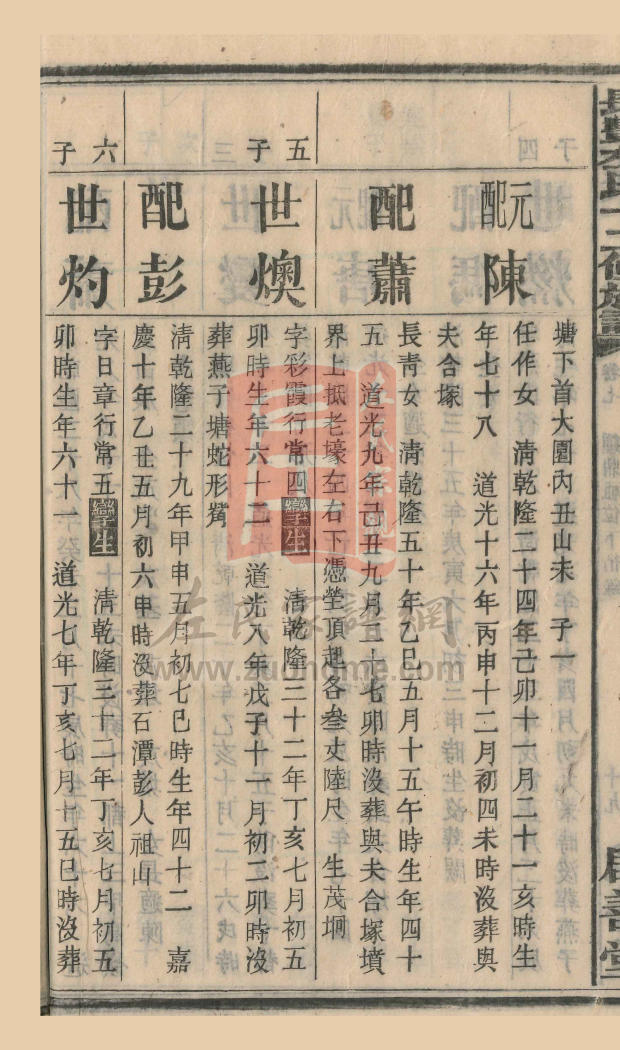 塘下首大圍內丑山未　子一
元配陳
任作女　清乾隆二十四年己卯十一月二十一亥時生
年七十八　道光十六年丙申十二月初四未時沒葬與
夫合塚
配蕭
長青女　清乾隆五十年乙巳五月十五午時生年四十
五　道光九年己丑九月三十七卯時沒葬與夫合塚墳
界上抵老壕左右下憑塋頂起各叁丈陸尺　生茂坰
五子
世燠
字彩霞行常四孿生　清乾隆三十二年丁亥七月初五
卯時生年六十二　道光八年戊子十一月初二卯時沒
葬燕子塘蛇形
配彭
清乾隆二十九年甲申五月初七巳時生年四十二　嘉
慶十年乙丑五月初六申時沒葬石潭彭人祖山
六子
世灼
字日章行常五孿生　清乾隆三十二年丁亥七月初五
卯時生年六十一　道光七年丁亥七月廿五巳時沒葬
左氏家譜網
www.zuohome.com